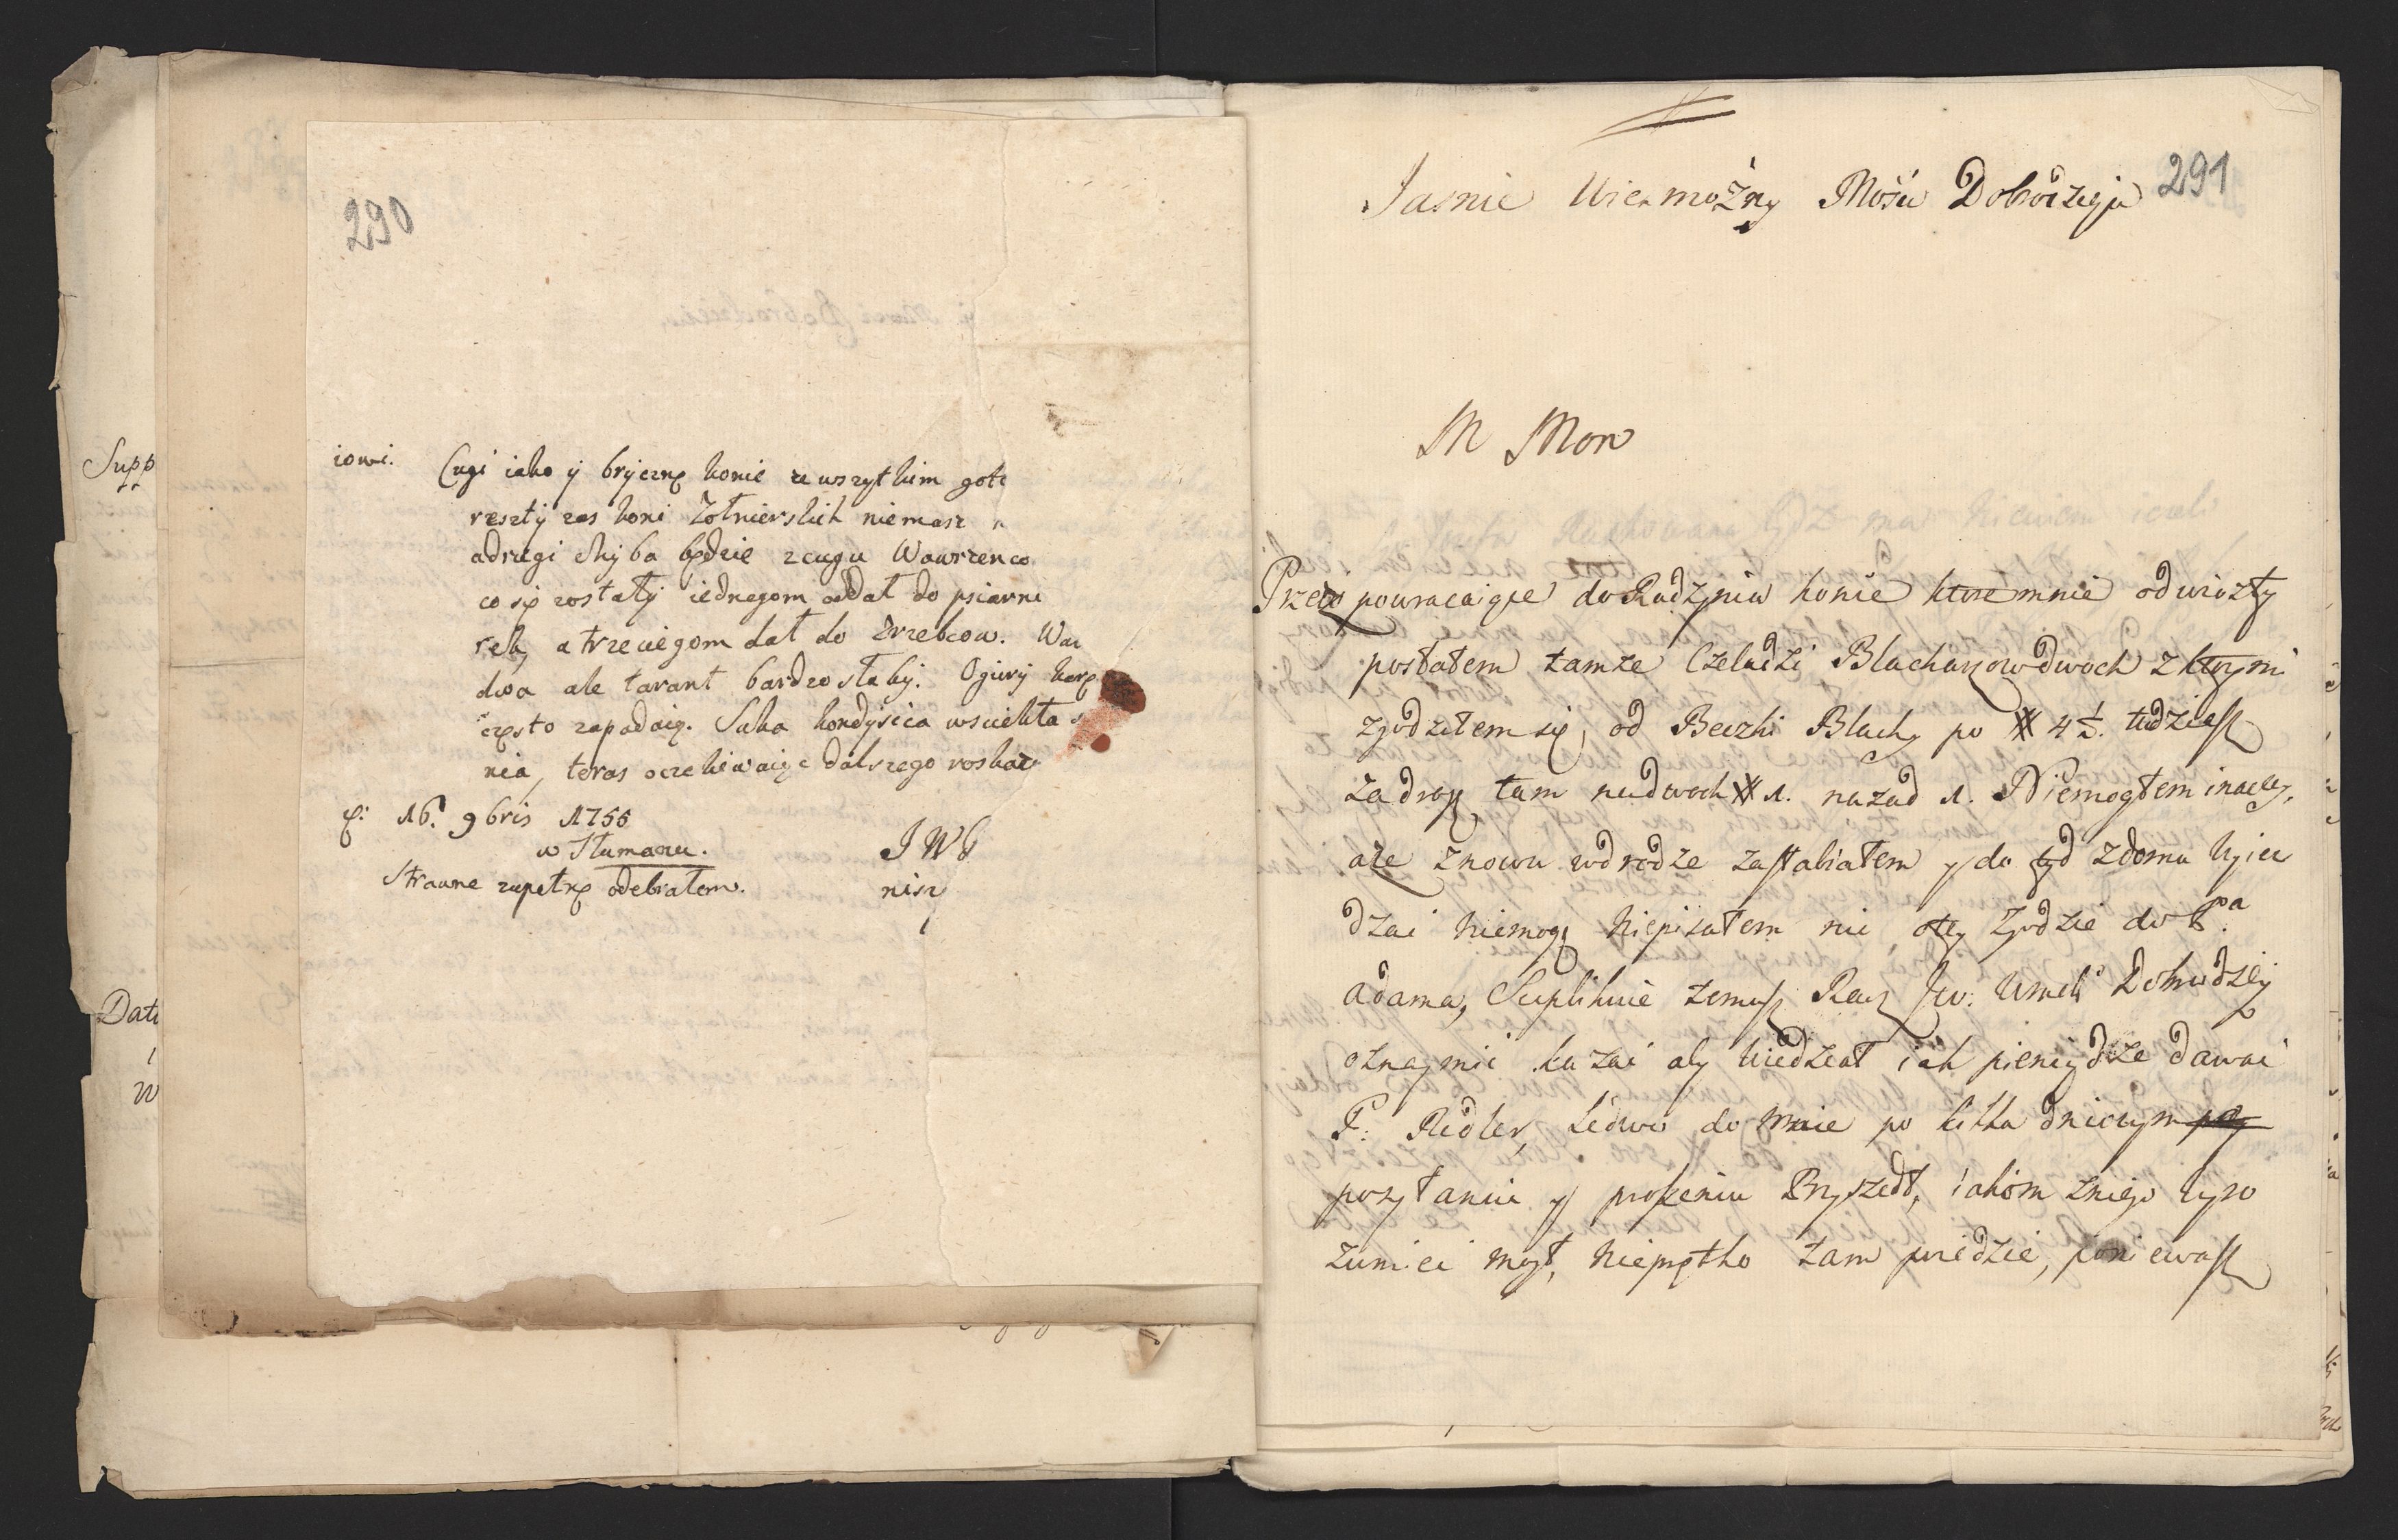 290
iowi. Cugi iako ÿ brÿcznę konie ze wszytkim goto
resztÿ zas koni Zołnierskich niemasz
adrugi chÿba będzie zcugu Wawrzenco
co się zostałÿ iednegom oddał do psiarni
a trzeciegom dał do Zrzebcow.
dwa ale tarant bardzo słabÿ. Ogurÿ
często zapadaią. Suka kondÿsica wsciekła
nia, teras oczekiwaiąc dalszego roskaz
16. 9bris 1755
w Tłumaczu.
Strawne zupełnę odebrałem.
J W
nisz
Supp
Dat
W
291
Jasnie Wielmożny Mości Dobodzieju
M Mon
Przez powracaiące do Radzynia konie ktore mnie odwiozły
posłałem tamze Czeladzi Blacharzow dwoch z ktorymi
zgodziłem się, od Beczki Blachy po # 4 ½. tudziesz
za drogę tam na dwoch # 1. nazad 1. Niemogłem inaczey,
aze znowu w drodze zasłabiałem y do tąd z domu wyiez
dzac niemogę niepisałem nic o tey Zgodzie do P.pa
Adama, Suplikuie zemusz Racz Jw. Wmć Dobrodziey
oznaymic kazac aby wiedział iak pieniądze dawac
P. Redler, ledwo do mnie po kilka dniowym
posyłaniu y proszeniu Przyszedł, iakom z niego wyro
zumiec mogł, nieprętko tam poiedzie, poniewasz